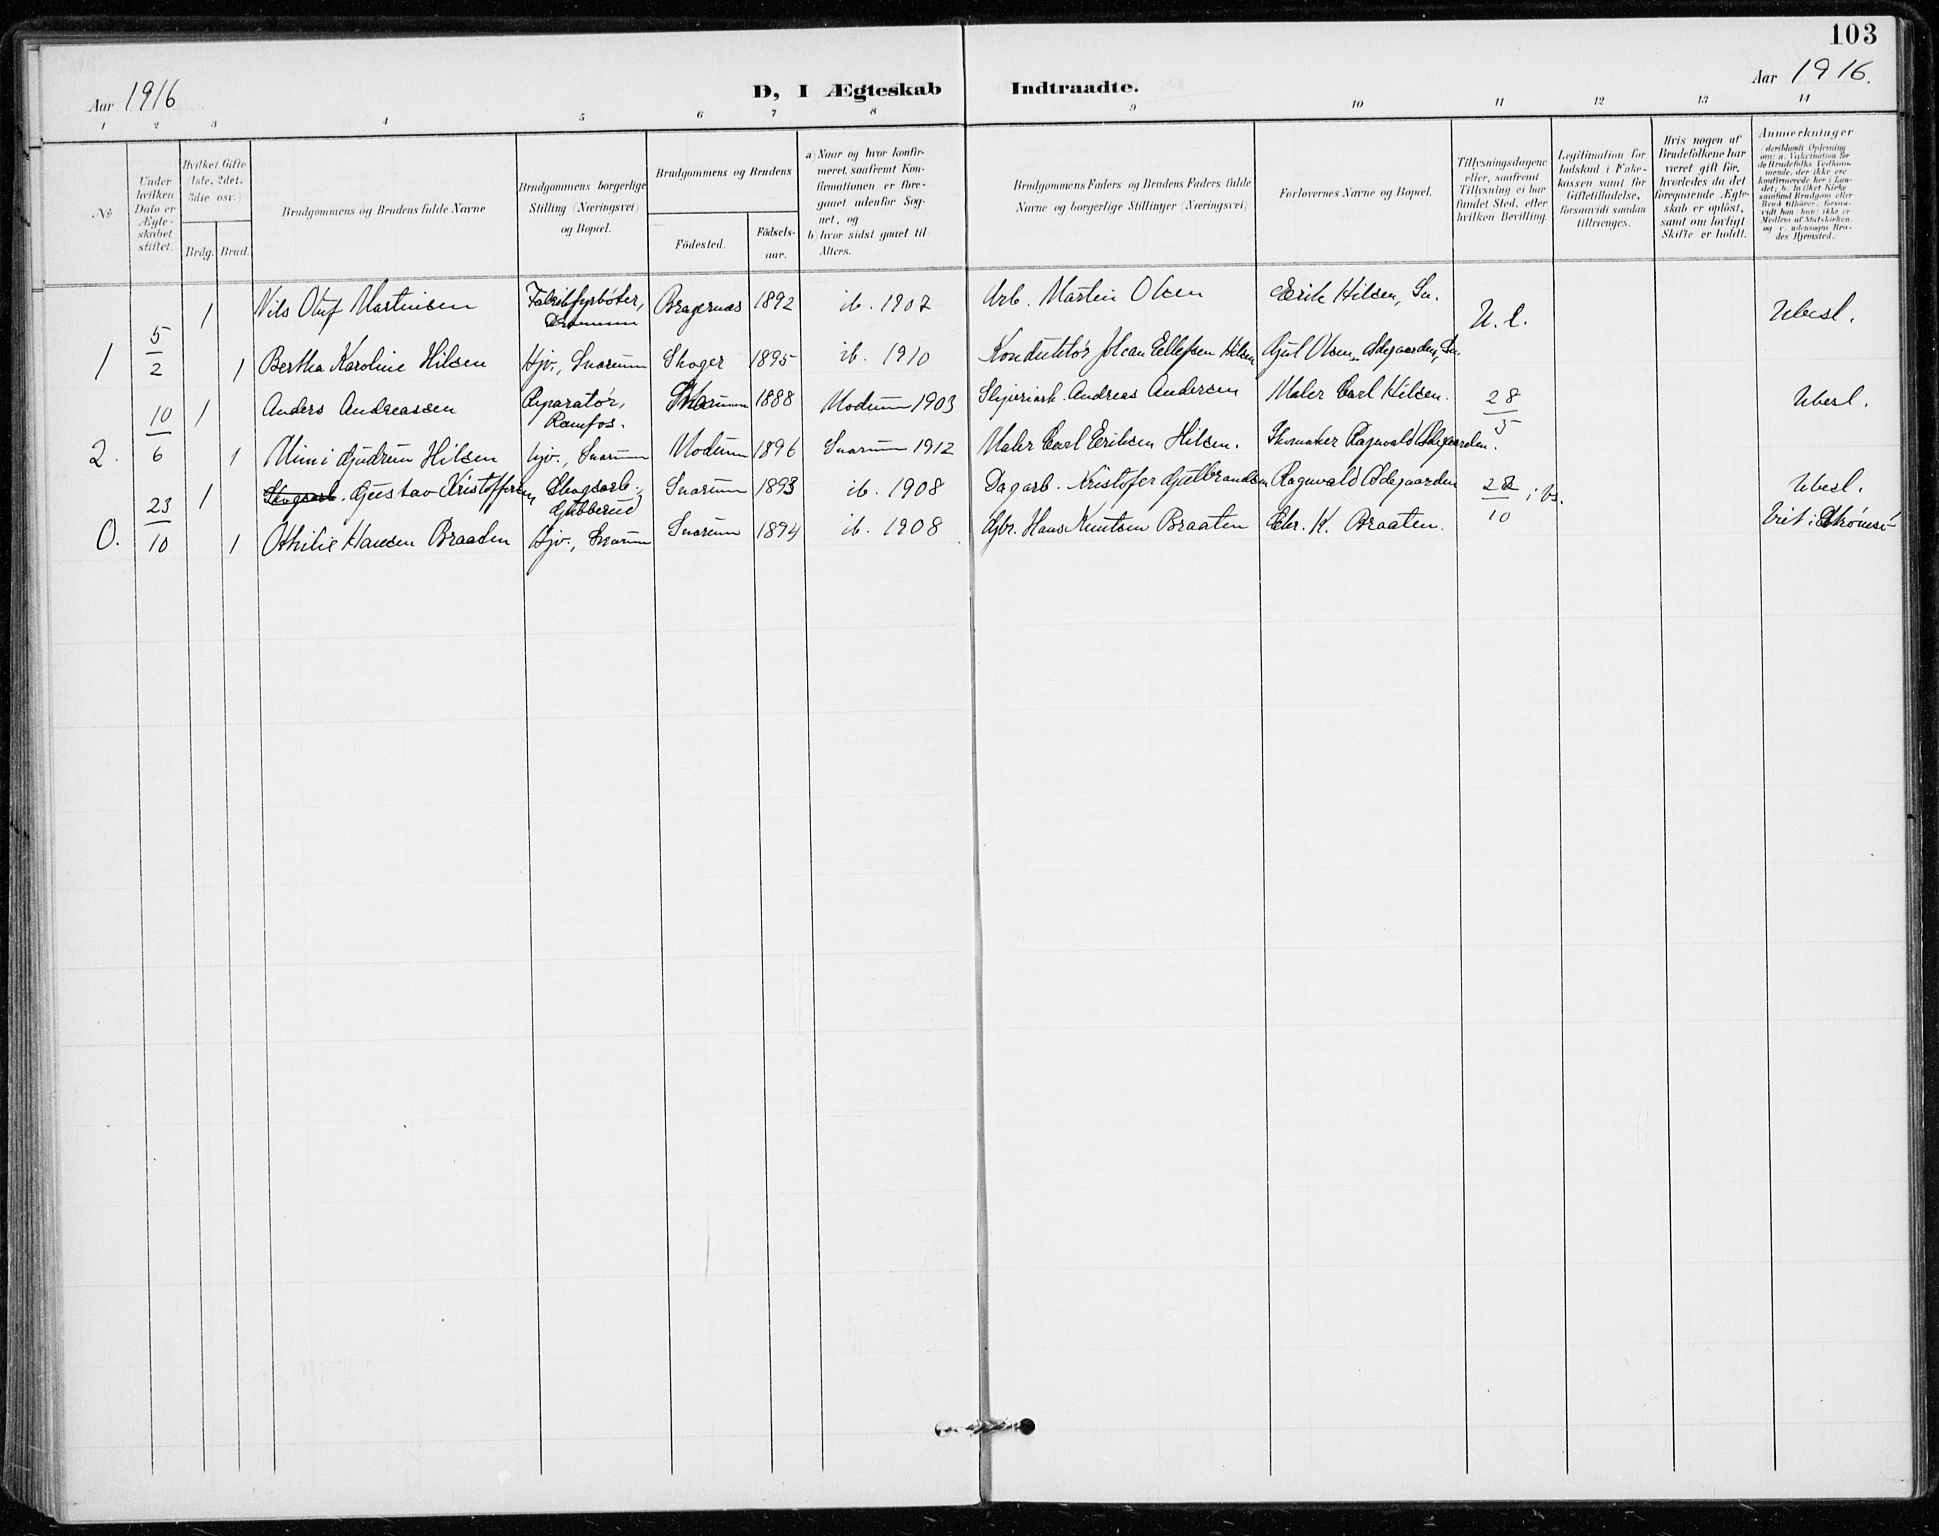 103
Aar 1916
D, I Ægteskab Indtraadte.
Aar 1916.
1 2 3 4 5 6 7 8 9 10 11 12 13 14
No
Under hvilken Dato er Ægteskabet stiftet.
Hvilket Gifte (1ste, 2det, 3die osv.)
Brdg. Brud.
Brudgommens og Brudens fulde Navne
Brudgommens borgerlige Stilling (Næringsvei) og Bopæl.
Brudgommens og Brudens
Födested.
Födselsaar.
a) Naar og hvor konfirmeret, saafremt Konfirmationen er foregaaet udenfor Sognet, og
b) hvor sidst gaaet til Alters.
Brudgommens Faders og Brudens Faders fulde Navne og borgerlige Stillinger (Næringsvei)
Forlovernes Navne og Bopæl.
Tillysningsdagene eller, saafremt Tillysning ei har fundet Sted, efter hvilken Bevilling.
Legitimation for Indskud i Enkekassen samt for Giftetilladelse, forsaavidt saadan tiltrænges.
Hvis nogen af Brudefolkene har været gift før, hvorledes da det foregaaende Ægteskab er opløst, samt om lovligt Skifte er holdt.
Anmerkninger
deriblandt Oplysning om: a. Vakcination for de Brudefolks Vedkommende, der ikke ere konfirmerede her i Landet; b. hvilket Kirkesamfund Brudgom eller Brud tilhører, forsaavidt han (hun) ikke er Medlem af Statskirken, og c. udensogns Brudes Hjemsted.
1 Nils Oluf Martinsen Fabrikfyrbøter, Drammen Bragernæs 1892 ib. 1907 Arb. Martin Olsen Erik Hilsen, Sn. U. l. Ubesl.
1 5/2 1 Bertha Karoline Hilsen Hjv., Snarum Skoger 1895 ib. 1910 Konduktör Johan Ellefsen Hilsen Gjul Olsen Ødegaarden, Sn.
10/6 1 Anders Andreassen Reparatør, Ramfos. Snarum 1888 Modum 1903 Sliperiarb. Andreas Andersen Maler Carl Hilsen. 28/5 Ubesl.
2. 1 Mimi Gudrun Hilsen hjv., Snarum Modum 1896 Snarum 1912 Maler Carl Eriksen Hilsen. Skomaker Ragnvald Ødegaarden.
23/10 1 Skogsarb. Gustav Kristoffersen Skogsarb. Gubberud Snarum 1893 ib. 1908 Dagarb. Kristofer Gulbrandsen Ragnvald Ødegaarden 22/10 Ubesl.
0. 1 Othilie Hansen Braaten Hjv., Snarum Snarum 1894 ib. 1908 Gbr. Hans Knutsen Braaten Chr. K. Braaten. Viet i Strömsö